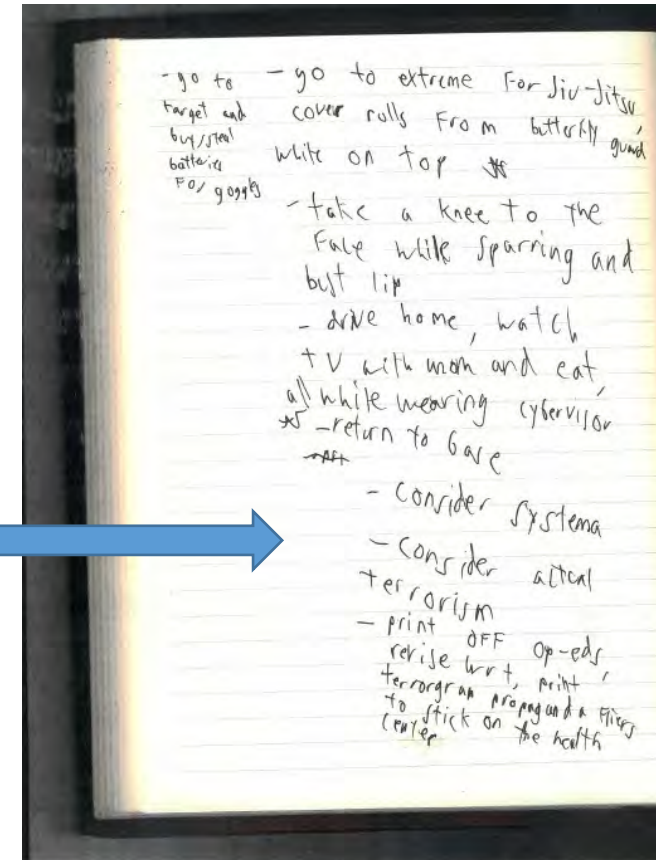 - go to
target and
buy/steal
batteries
For goggles
- go to extreme For Jiu-Jitsu,
cover rolls From butterfly guard
while on top
- take a knee to the
Face while sparring and
bust lip
- drive home, watch
TV with mom and eat,
all while wearing cybervisor
- return to base
- Consider Systema
- Consider actual
terrorism
- print OFF op-eds,
revise wrt, print
terrorgram propaganda Fliers
to stick on the health
center